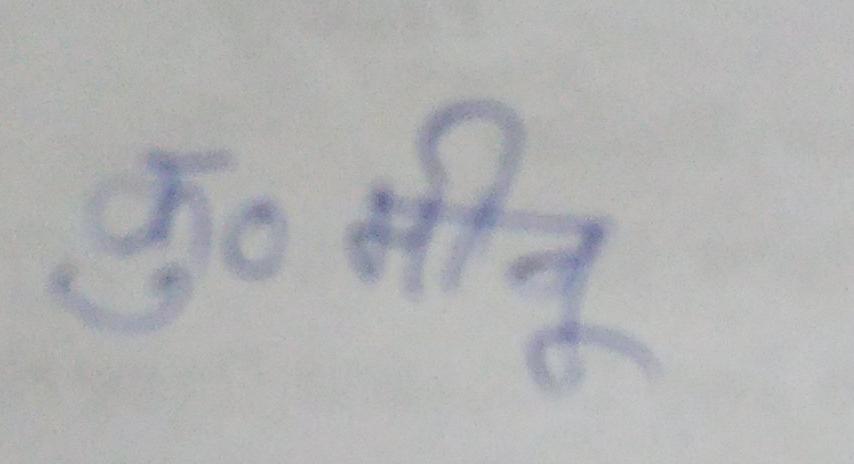 कु० मीनू